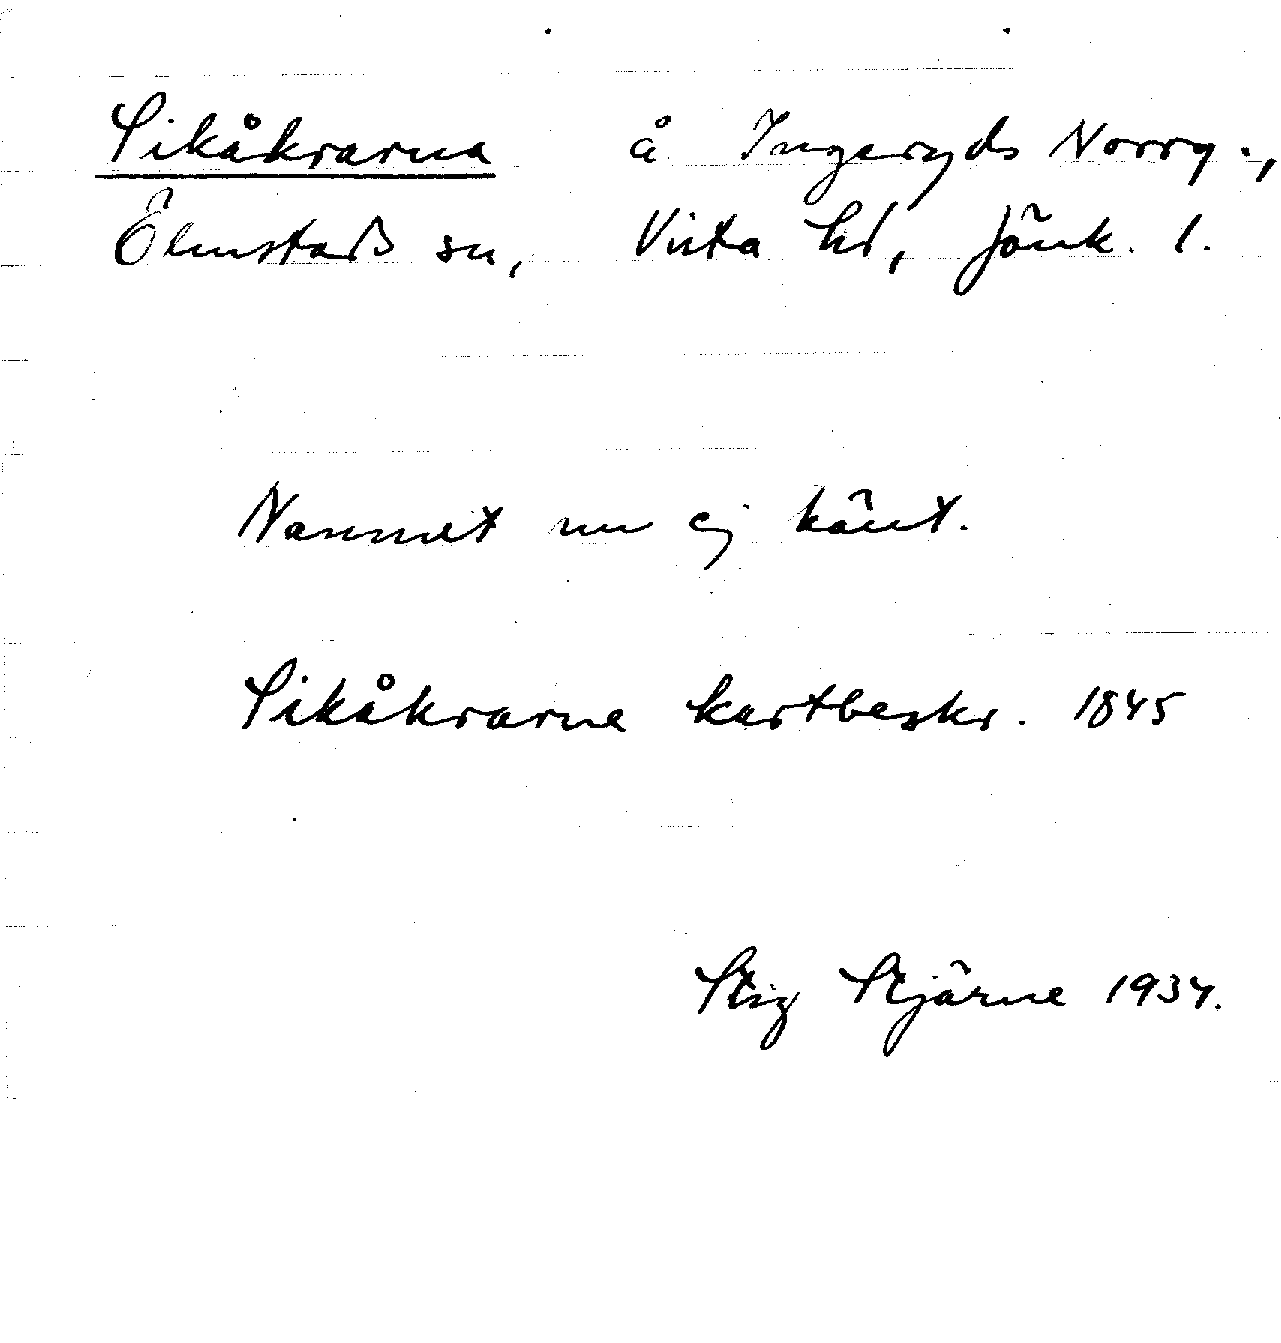 Sikåkrarna å Ingeryds Norrg.,
Ölmstads sn, Vista hd, Jönk. l.
Namnet nu ej känt.
Sikåkrarne kartbeskr. 1845
Stig Stjärne 1934.